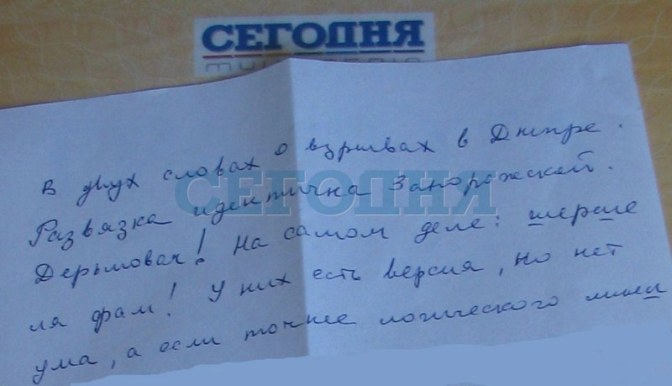 СЕГОДНЯ
МУЛЬТИМЕДИА
В двух словах о взрывах в Днепре.
Развязка идентична Запорожской.
СЕГОДНЯ
Дерьмовая! На самом деле: шерше
ля фам! У них есть версия, но нет
ума, а если точнее логического